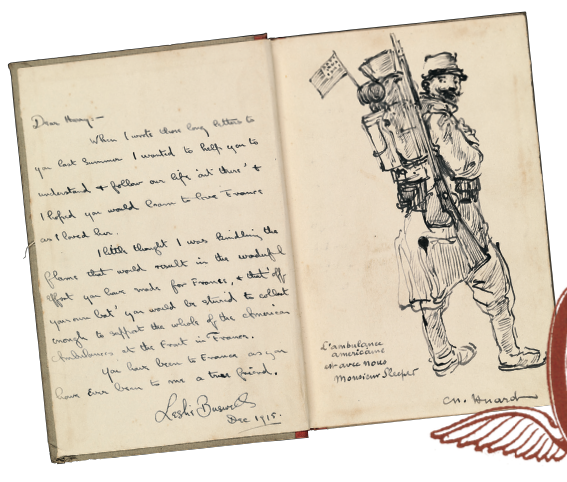 Dear Harry:—
When I wrote those long letters to
you last summer I wanted to help you to
understand & follow our life 'out there' &
I hoped you would learn to love France
as I loved her.
I little thought I was kindling the
flame that would result in the wonderful
effort you have made for France, & that 'off
your own bat' you would be stirred to collect
enough to support the whole of the American
Ambulances at the Front in France.
You have been to France as you
have ever been to me a true friend.
Leslie Buswell
Dec 1915.
L'ambulance
américaine
est avec nous
Monsieur Sleeper
Ch. Huard